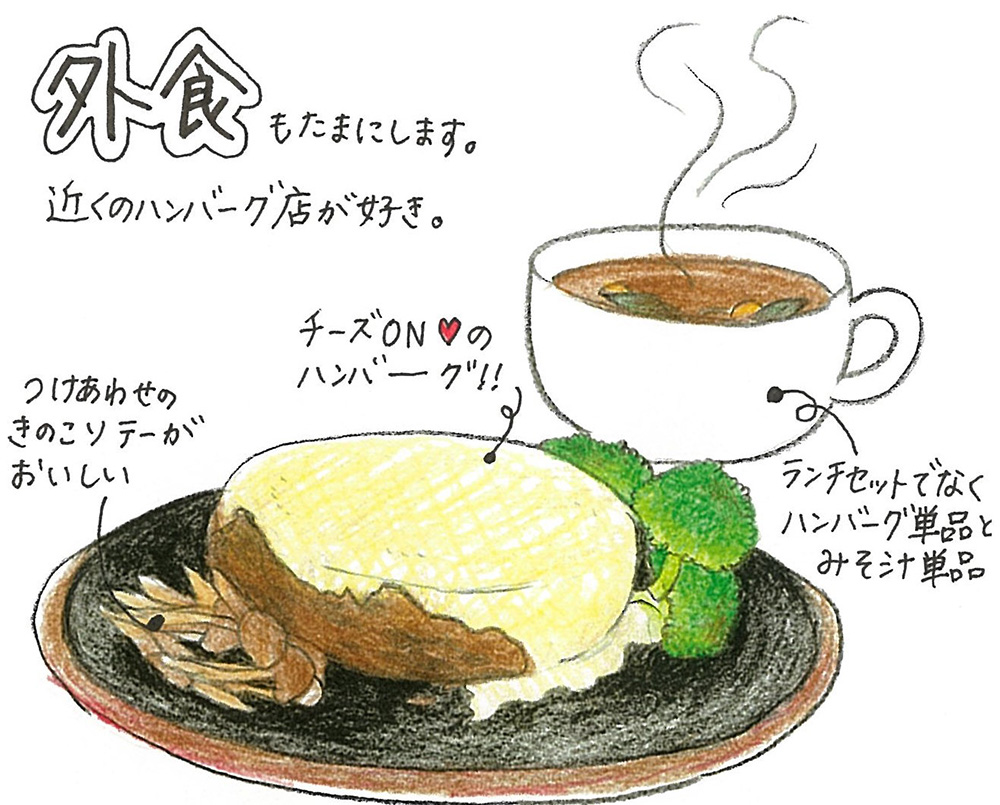 外食もたまにします。
近くのハンバーグ店が好き。
チーズON♥の
ハンバーグ!!
つけあわせの
きのこソテーが
おいしい
ランチセットでなく
ハンバーグ単品と
みそ汁単品